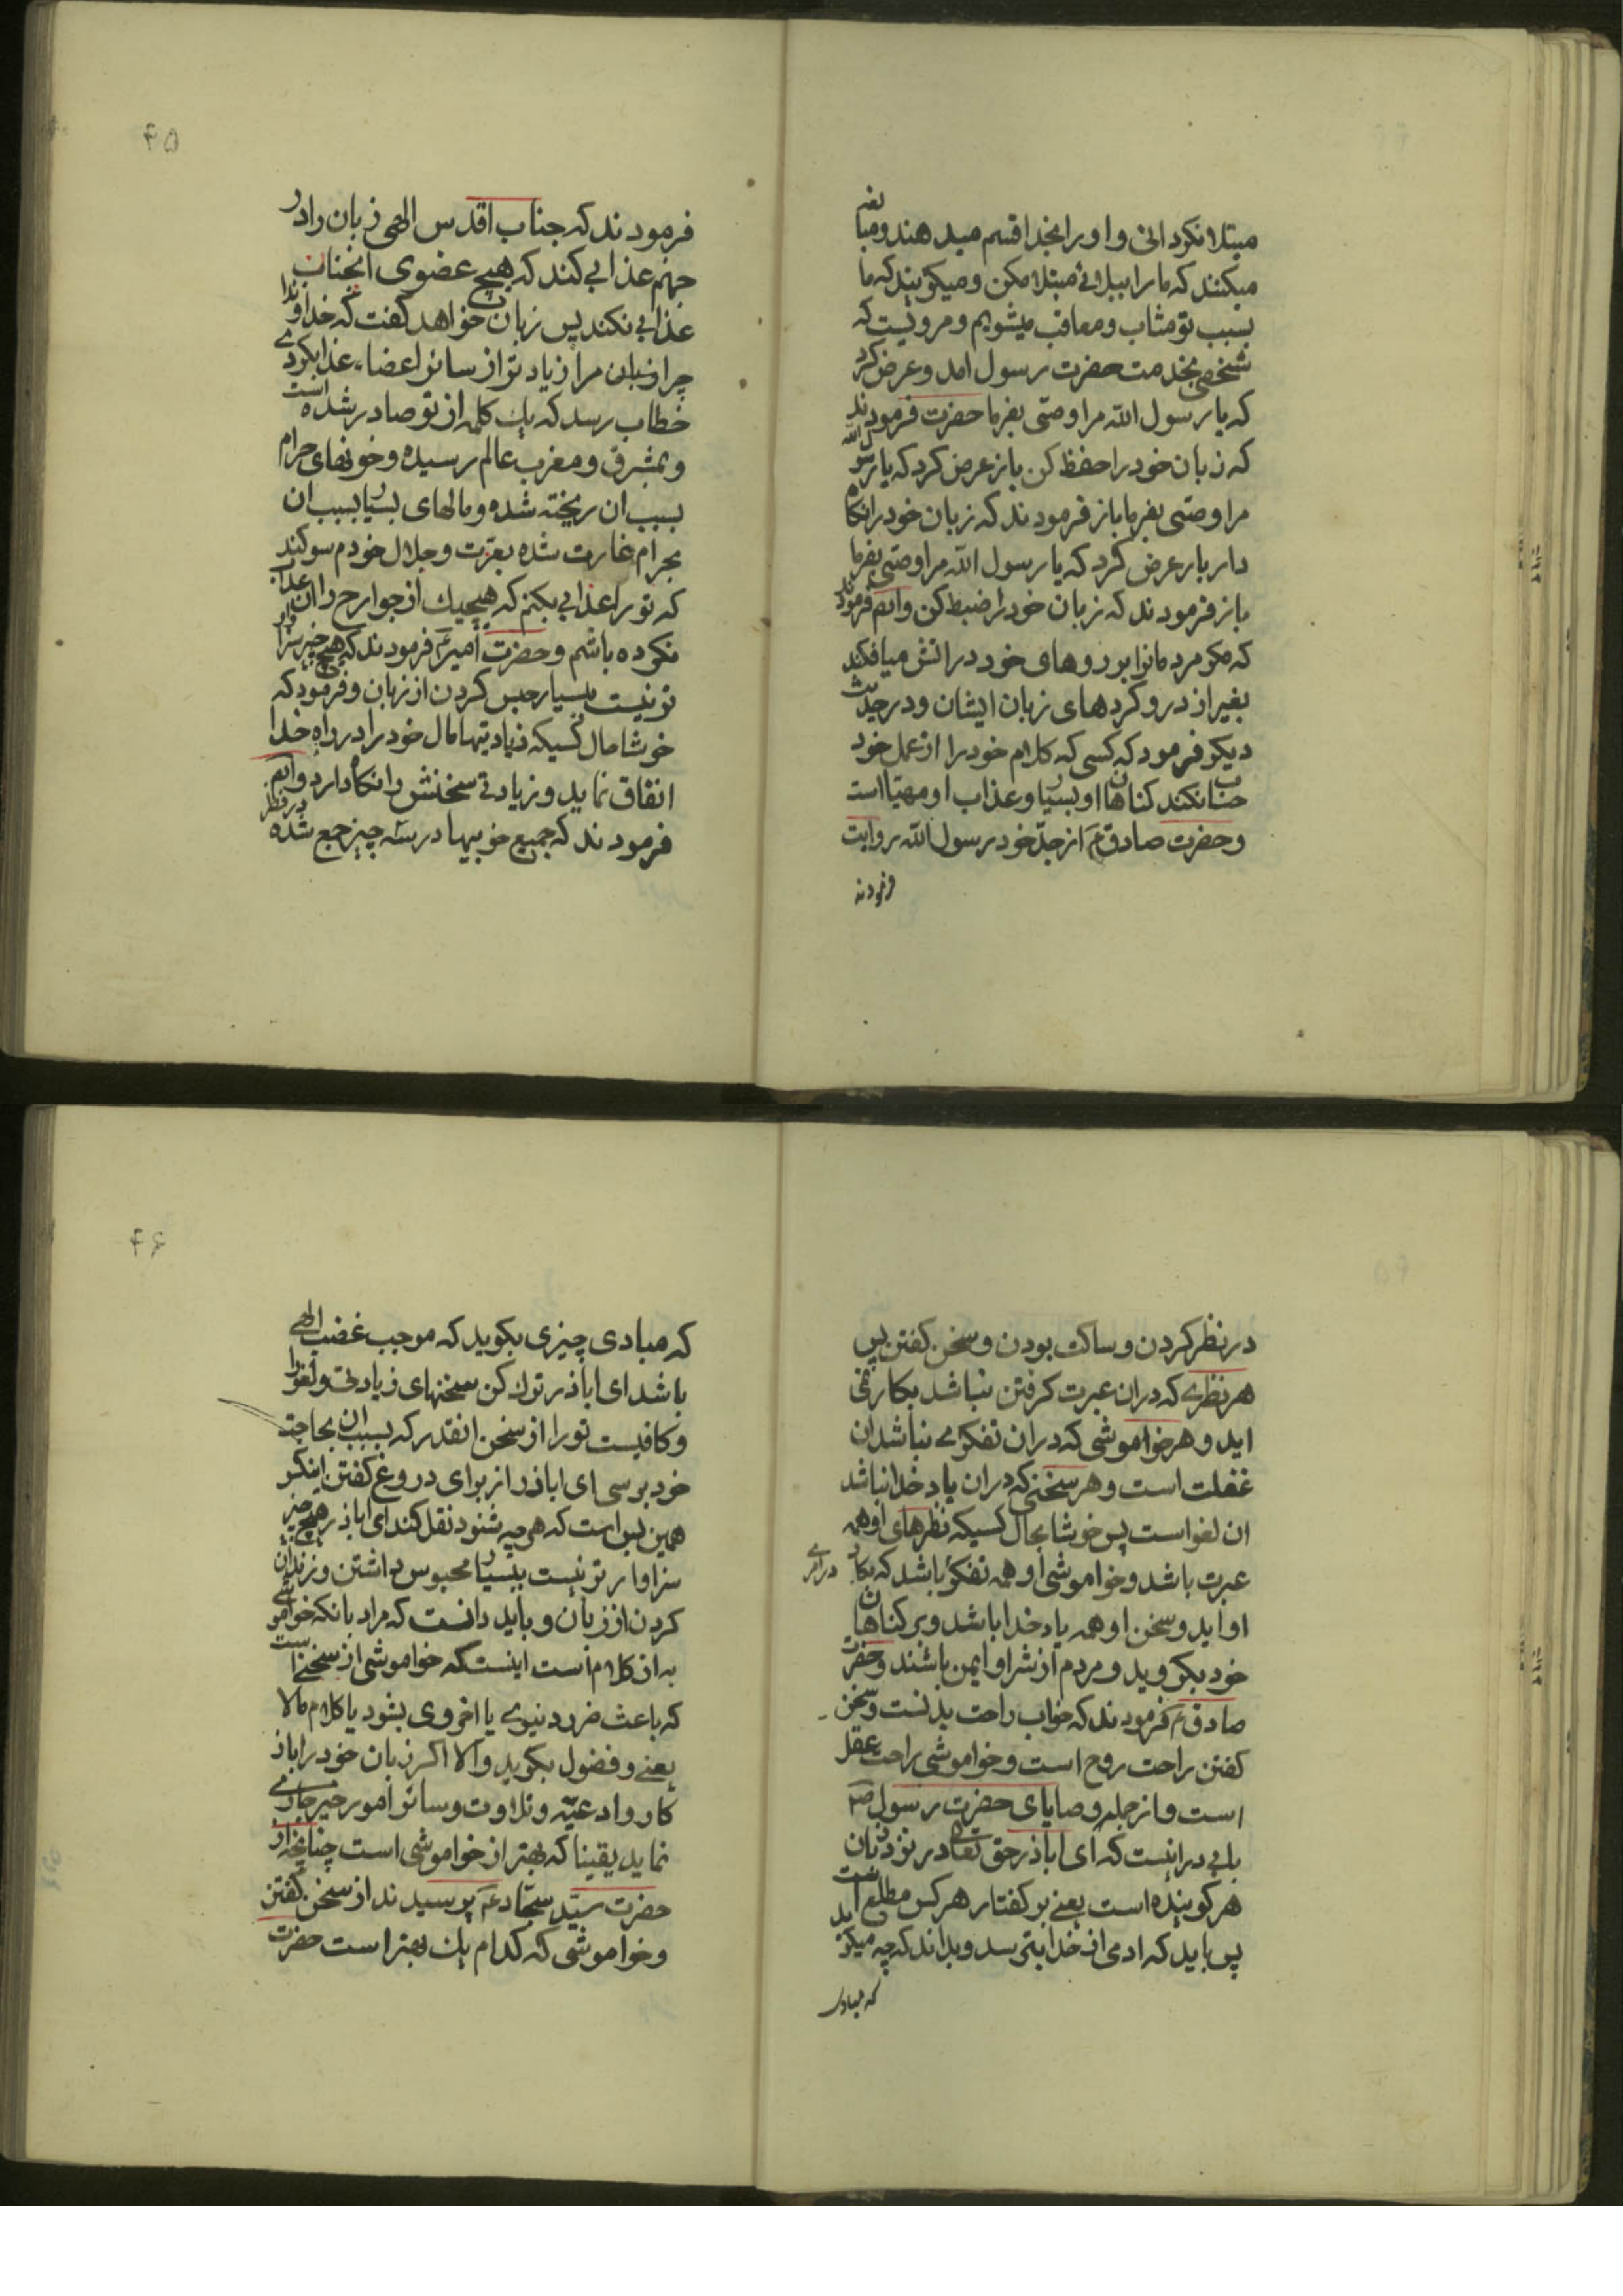 مبتلا نکردانی و او را بخدا قسم میدهند و مبالغه
میکنند که ما را ببلائی مبتلا مکن و میکویند که ما
بسبب تو مثاب و معاقب میشویم و مرویست که
شخصی بخدمت حضرت رسول امد و عرض کرد
که یا رسول الله مرا وصتی بفرما حضرت فرمودند
که زبان خود را حفظ کن باز عرض کرد که یا رسول الله
مرا وصتی بفرما باز فرمودند که زبان خود را نکاه
دار باز عرض کرد که یا رسول الله مرا وصتی بفرما
باز فرمودند که زبان خود را ضبط کن وایم فرمودند
که مکر مردمانرا بر روهای خود در اتش میافکند
بغیر از دروکردهای زبان ایشان و در حدیث
دیکر فرمود که کسی که کلام خود را از عمل خود
حساب نکند کناهان او بسیار و عذاب او مهیا است
و حضرت صادق ع از جدّ خود رسول الله روایت
فرمودند
۴۵
فرمودند که جناب اقدس الهی زبان را در
جهنم عذابی کند که هیچ عضوی انچنان
عذابی نکند پس زبان خواهد کفت که خداوندا
چرا زبان مرا زیادتر از سائر اعضاء عذاب کردی
خطاب رسد که یک کلمه از تو صادر شده است
و بمشرق و مغرب عالم رسیده و خونهای حرام
بسبب ان ریخته شده و مالهای بسیار بسبب ان
بحرام غارت شده بعزت و جلال خودم سوکند
که تو را عذابی بکنم که هیچیک از جوارح را ان عذاب
نکرده باشم و حضرت امیر ع فرمودند که هیچ چیز سزاوار
تر نیست ببسیار حبس کردن از زبان و فرمود که
خوشا حال کسیکه زیادتیهای مال خود را در راه خدا
انفاق نماید و زیادتی سخنش را نکاه دارد وایم
فرمودند که جمیع خوبیها در سه چیز جمع شده در نظر
در نظر کردن و ساکت بودن و سخن کفتن پس
هر نظری که دران عبرت کرفتن نباشد بکار نمی
اید و هر خواموشی که دران تفکری نباشد ان
غفلت است و هر سخنی که دران یاد خدا نباشد
ان لغو است پس خوشا بحال کسیکه نظرهای او همه
عبرت باشد و خواموشی او همه تفکر باشد که بکار
او اید و سخن او همه یاد خدا باشد و بر کناهان
خود بکرید و مردم از شر او ایمن باشند و حضرت
صادق ع فرمودند که خواب راحت بدنست و سخن
کفتن راحت روح است و خواموشی راحت عقل
است و از جمله وصایای حضرت رسول ص
بابی ذر اینست که ای اباذر حق تعالی در نزد زبان
هر کوینده است یعنی بر کفتار هر کس مطلع است
پس باید که ادمی از خدا بترسد و بداند که چه میکوید
که مبادی
۴۶
که مبادی چیزی بکوید که موجب غضب الهی
باشد ای اباذر ترک کن سخنهای زیادتی و لغو را
و کافیست تو را از سخن انقدر که بسبب ان بحاجت
خود برسی ای اباذر از برای دروغ کفتن اینکس
همین بس است که هر چه شنود نقل کند ای اباذر هیچ چیز
سزاوار تر نیست ببسیار محبوس داشتن و زندان
کردن از زبان و باید دانست که مراد بانکه خواموشی
به از کلام است اینست که خواموشی از سخنی است
که باعث ضرر دنیوی یا اخروی بشود یا کلام مالا
یعنی و فضول بکوید و الا اکر زبان خود را باذ
کار و ادعیّه و تلاوت و سائر امور خیر جاری
نماید یقینا که بهتر از خواموشی است چنانچه از
حضرت سیّد سجّاد ع پرسیدند از سخن کفتن
و خواموشی که کدام یک بهتر است حضرت